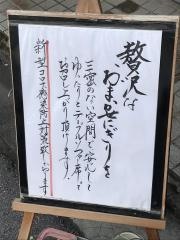 贅沢な
おまかせにぎりを
三密のない空間で安心して
ゆったりとテーブル・ソファ席で
お召し上がり頂けます!
新型コロナ感染防止対策致しております